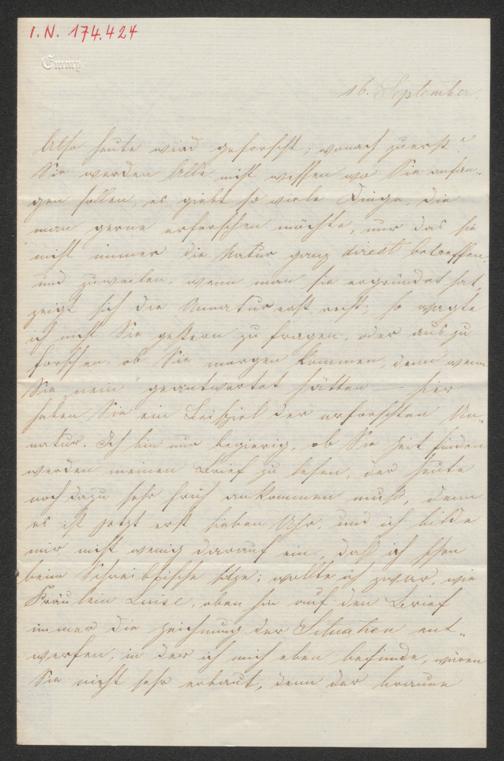 I.N. 174.424
16. September.
Also heute wird geforscht; wonach zuerst?
Sie werden alle nicht wissen wo Sie anfan-
gen sollen, es giebt so viele Dinge, die
man gerne erforschen möchte, nur das sie
nicht immer die Natur ganz direct betreffen
und zuweilen, wenn man sie ergründet hat,
zeigt sich die Unnatur erst recht; so wagte
ich nicht Sie gestern zu fragen, oder auszu
forschen, ob Sie morgen kommen, denn wenn
Sie nein geantwortet hätten – hier
haben Sie ein Beispiel der erforschten Un-
natur. Ich bin nur begierig, ob Sie Zeit finden
werden meinen Brief zu lesen, der heute
noch dazu sehr früh ankommen muß, denn
es ist jetzt erst sieben Uhr, und ich bilde
mir nicht wenig darauf ein, daß ich schon
beim Schreibtische sitze; wollte ich zwar, wie
Fräulein Luise, oben hin auf den Brief
immer die Zeichnung der Situation ent-
werfen, in der ich mich eben befinde, wären
Sie nicht sehr erbaut, denn der braune